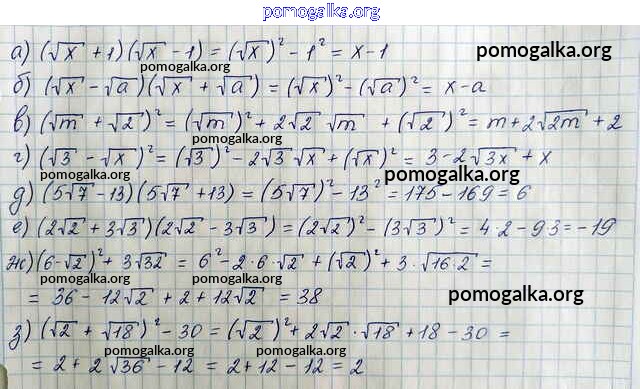 pomogalka.org
а) (√x + 1)(√x − 1) = (√x)² − 1² = x − 1
pomogalka.org
pomogalka.org
б) (√x − √a)(√x + √a) = (√x)² − (√a)² = x − a
в) (√m + √2)² = (√m)² + 2√2 √m + (√2)² = m + 2√2m + 2
pomogalka.org
г) (√3 − √x)² = (√3)² − 2√3 √x + (√x)² = 3 − 2√3x + x
pomogalka.org
pomogalka.org
д) (5√7 − 13)(5√7 + 13) = (5√7)² − 13² = 175 − 169 = 6
е) (2√2 + 3√3)(2√2 − 3√3) = (2√2)² − (3√3)² = 4·2 − 9·3 = −19
ж) (6−√2)² + 3√32 = 6² − 2·6·√2 + (√2)² + 3·√16·2 =
pomogalka.org
pomogalka.org
= 36 − 12√2 + 2 + 12√2 = 38
pomogalka.org
з) (√2 + √18)² − 30 = (√2)² + 2√2·√18 + 18 − 30 =
pomogalka.org
pomogalka.org
= 2 + 2√36 − 12 = 2 + 12 − 12 = 2